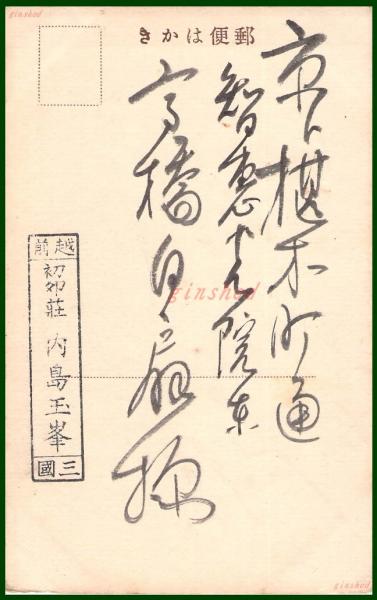 ginshod
郵便はかき
京ト椹木町通
智恵光院東
高橋白扇様
越前
初卯荘 内島玉峯
三國
ginshod
ginshod